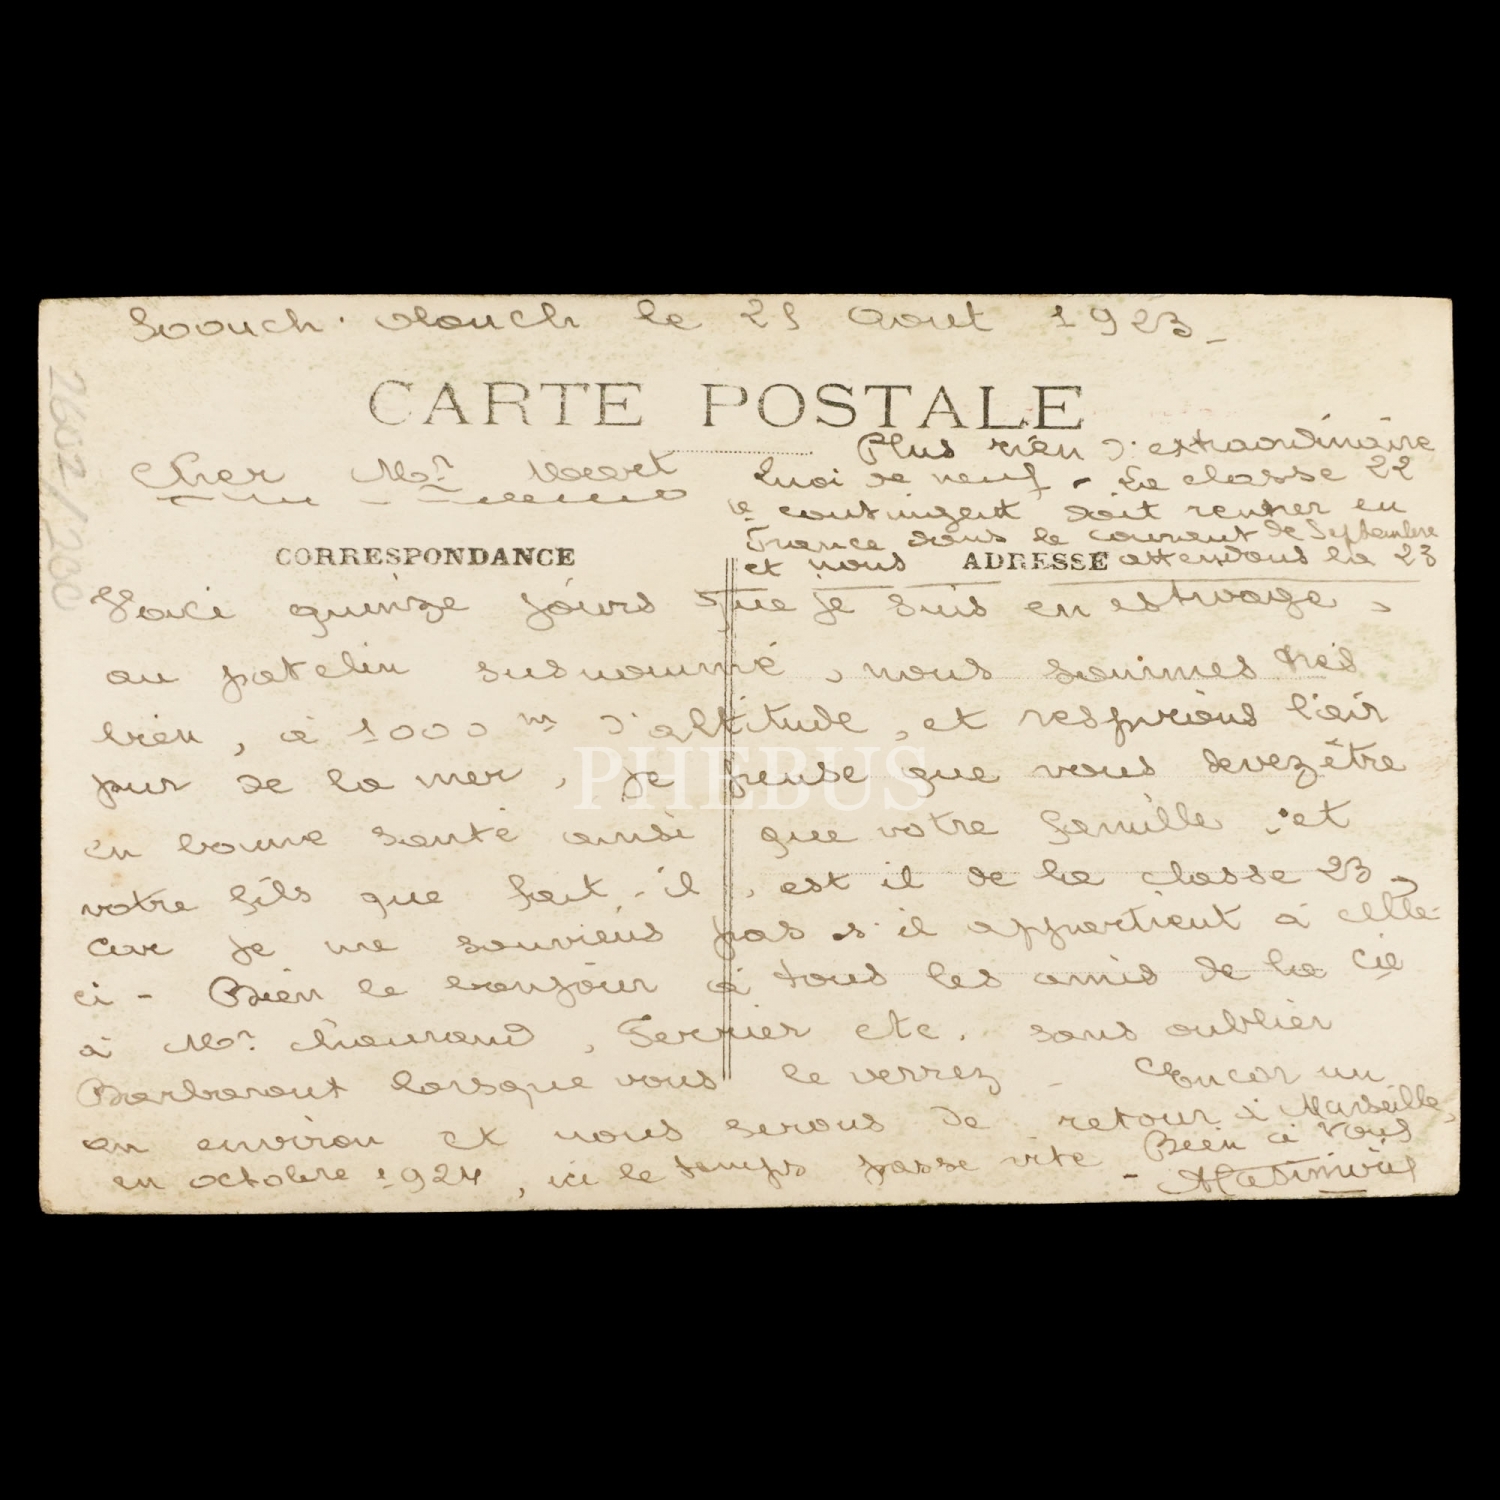 le 25 Aout 1923 -
CARTE POSTALE
Cher Mr
Plus rien d'extraordinaire
Quoi de neuf - La classe 22
1e contingent doit rentrer en
France dans le courant de Septembre
et nous attendons la 23
CORRESPONDANCE
ADRESSE
Voici quinze jours que je suis en estivage,
au patelin susnommé, nous sommes très
bien, à 1000 m d'altitude, et respirons l'air
pur de la mer, je pense que vous devez être
en bonne santé ainsi que votre famille, et
votre fils que fait-il, est il de la classe 23,
car je me souviens pas s'il appartient à celle
ci - Bien le bonjour à tous les amis de la Cie
à Mr Chaurand, Ferrier etc. sans oublier
Barbarout lorsque vous le verrez - Encor un
an environ et nous serons de retour à Marseille,
en octobre 1924, ici le temps passe vite - Bien à Vous
PHEBUS
2602/200